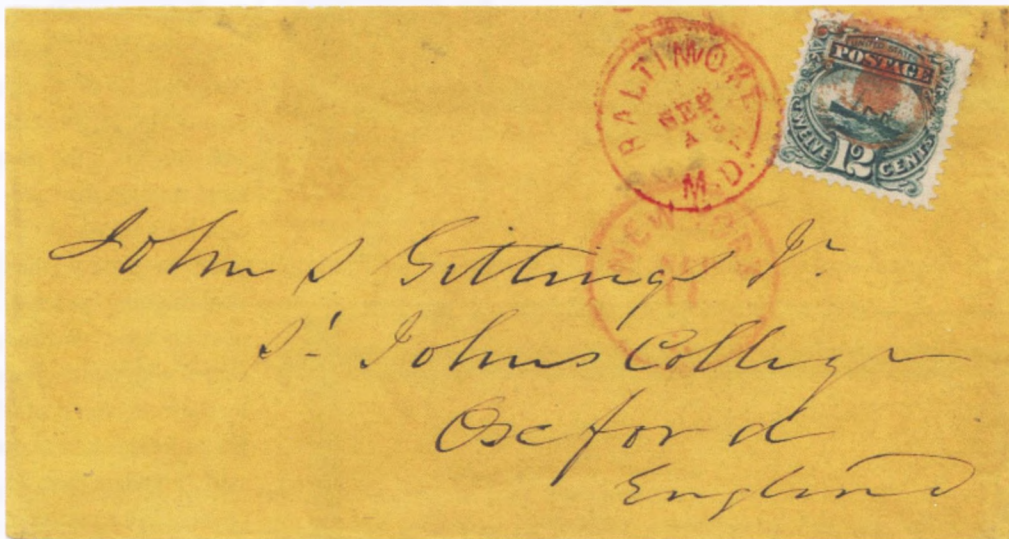 BALTIMORE
SEP
M.D.
UNITED STATES
POSTAGE
TWELVE 12 CENTS
NEW YORK
John S Gittings Jr.
St. Johns College
Oxford
England